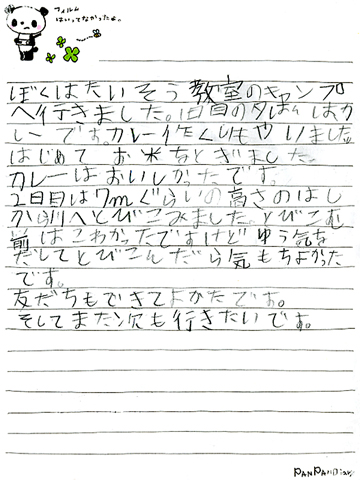 フィルム
はいってなかったよ。
ぼくはたいそう教室のキャンプ
へ行きました。1日目の夕はんはカ
レーです。カレー作くりもやりました。
はじめてお米もとぎました。
カレーはおいしかったです。
2日目は7mぐらいの高さのはし
から川へとびこみました。とびこむ
前はこわかったですけどゆう気を
だしてとびこんだら気もちよかった
です。
友だちもできてよかたです。
そしてまた次も行きたいです。
PANPANDiary